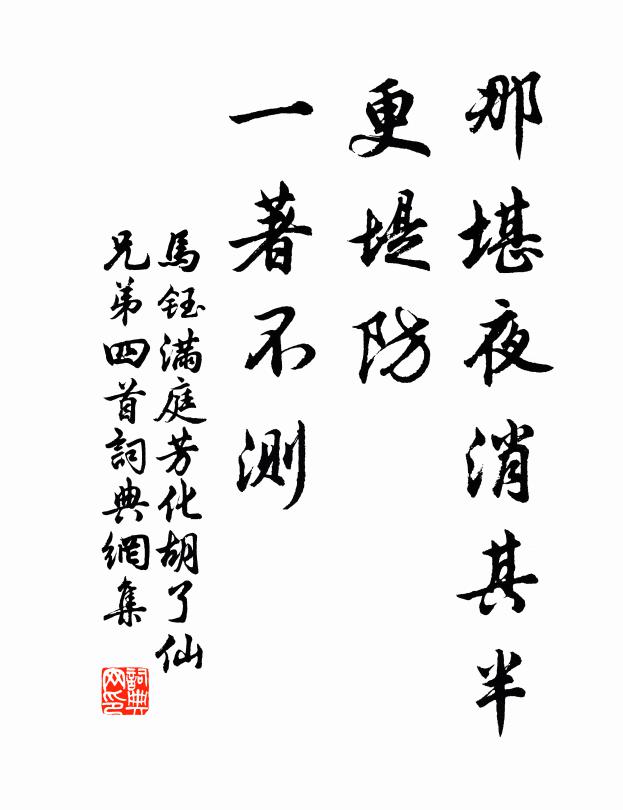 那堪夜消其半
更堤防
一著不測
馬鈺滿庭芳化胡了仙
兄弟四首詞典網集
詞典
网印